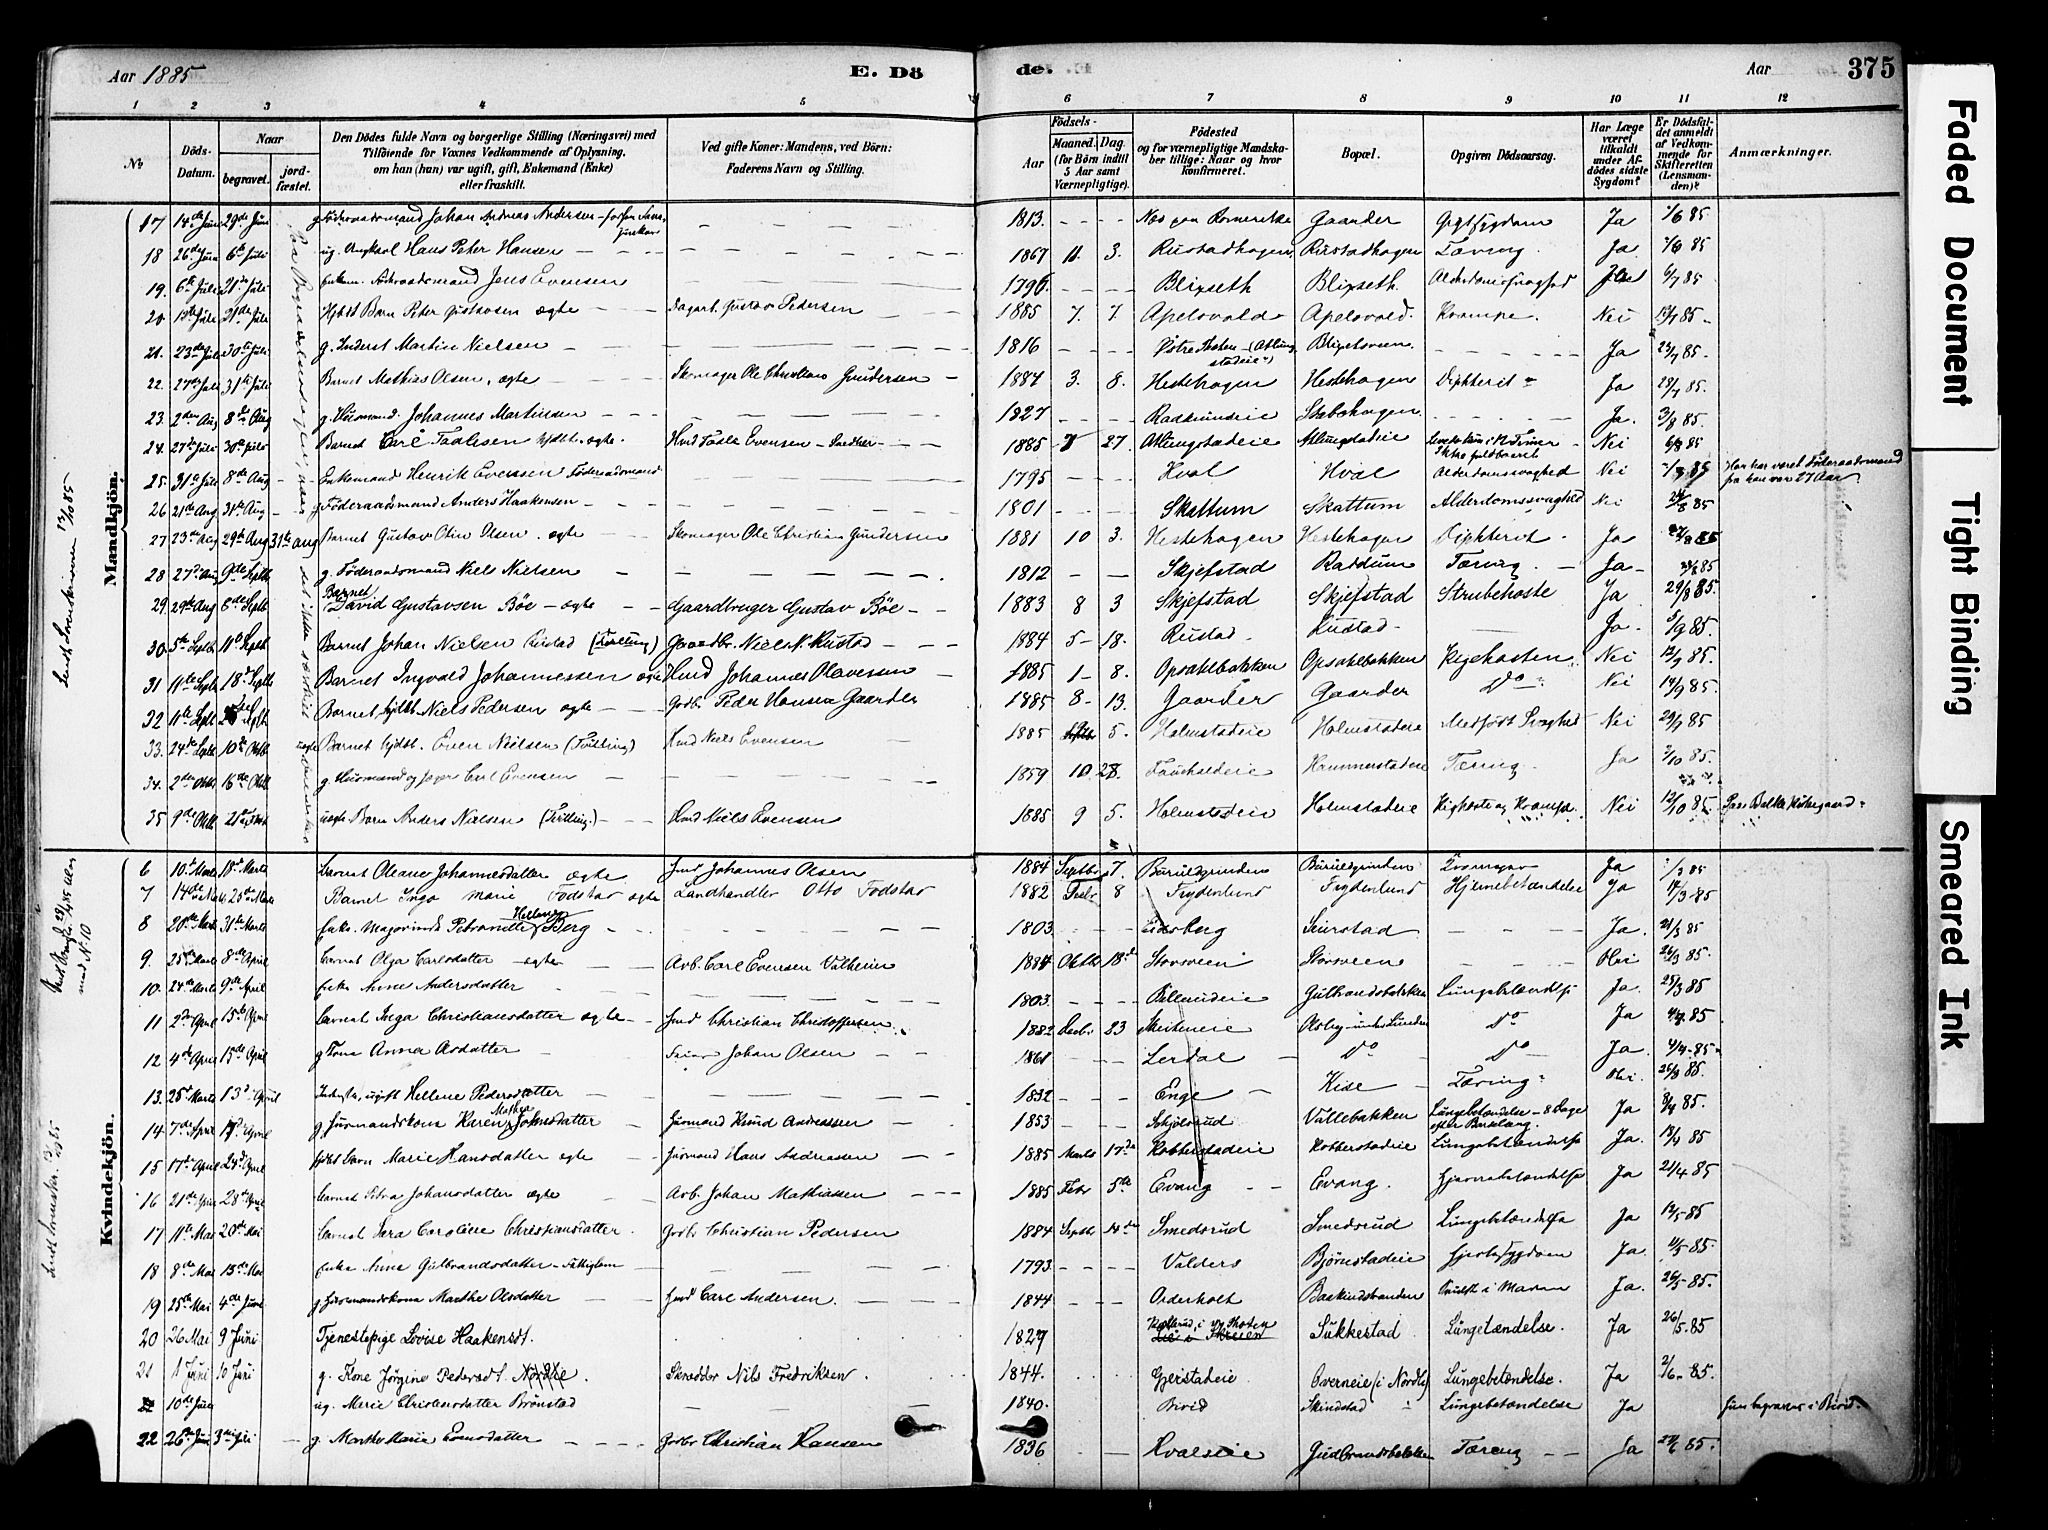 Aar 1885 E. Dö de. Aar 375
1 2 3 4 5 6 7 8 9 10 11 12
No
Döds-Datum.
Naar
begravet.
jordfæstet.
Den Dödes fulde Navn og borgerlige Stilling (Næringsvei) med
Tilföiende for Voxnes Vedkommende af Oplysning,
om han (hun) var ugift, gift, Enkemand (Enke)
eller fraskilt.
Ved gifte Koner: Mandens, ved Börn:
Faderens Navn og Stilling.
Födsels-
Aar
Maaned. Dag.
(for Börn indtil
5 Aar samt
Værnepligtige).
Födested
og for værnepligtige Mandskaber tillige: Naar og hvor
konfirmeret.
Bopæl.
Opgiven Dödsaarsag.
Har Læge
været
tilkaldt
under Afdödes sidste
Sygdom?
Er Dödsfaldet anmeldt
af Vedkommende for
Skifteretten
(Lensmanden)?
Anmærkninger.
Mandkjön.
17 14de Juni 29de Juni g. Föderaadsmand Johan Andreas Andersen 1813. Næs paa Romerike Gaarder Ja 85
18 26de Juni 6te Juli ug. Hans Peter Hansen 1867 11. 3. Rustadhagen Rustadhagen Tæring Ja 85
19. 6te Juli 21de Juli Enkem. Föderaadsmand Jens Evensen 1796 Blixseth Blixseth. 6/7 85
20 Juli 21de Juli Barn Peter Gustavsen ægte Dagarb. Gustav Pedersen 1885 7. 7. Apelsvold Apelsvold. Krampe. Nei 85
21. 23de Juli 30te Juli g. Inderst Martin Nielsen 1816 Ja 23/7 85.
22. 27de Juli 31te Juli Barnet Mathias Olsen, ægte Skomager Ole Christian Gundersen 1884 3. 8. Hestehagen Hestehagen Diphterit Ja 28/7 85.
23. 2den Aug 8de Aug g. Husmand. Johannes Martinsen 1827 Ja. 3/8 85
24. 27de Juli 30te Juli Barnet Carl ægte. Evensen 1885 27. Atlungstadeie Atlungstadeie Nei 85
25. 31te Juli 8de Aug Enkemand Henrik Evensen Föderaadsmand 1795 Hval Hval Alderdomssvaghed Nei 85 Han har været Föderaadsmand
fra han var 27 Aar
26 21de Aug 31te Aug g. Föderaadsmand Anders Haakensen 1801 Skattum Skattum Alderdomssvaghed Nei 85
27 23de Aug 29de Aug 31te Aug Barnet Gustav Olsen. ægte Skomager Ole Christian Gundersen 1881 10 3. Hestehagen Hestehagen Diphterit. Ja 85
28 27de Aug 9de Septb g. Föderaadsmand Niels Nielsen 1812 Skjefstad Raddum Tæring. Ja 85
29. 29de Aug 8de Septb Barnet David Gustavsen Böe ægte Gaardbruger Gustav Böe 1883 8 3 Skjefstad Skjefstad Strubehoste Ja 29/8 85.
30 5te Septb 11te Septb Barnet Johan Nielsen Rustad (Tvilling) Gaardbr. Niels N. Rustad 1884 5 18. Rustad Rustad Ja. 5/9 85.
31 11te Septb 18de Septb Barnet Ingvald Johannessen ægte Hmd Johannes Olavessen 1885 1 8. Opsahlbakken Opsahlbakken Kigehosten Nei 12/9 85.
32 11te Septb Barnet Niels Pedersen ægte Gdbr. Peder Hansen Gaarder 1885 8 13. Gaarder Gaarder Do Nei 14/9 85
33. 24de Septb 10de Oktb uægte Barnet Even Nielsen (Tvilling) Hmd Niels Evensen 1885 5. Holmstadeie Holmstadeie Medfödt Svaghed Nei 85
34. 2de Oktb 16de Oktb g. Husmand og Jæger Carl Evensen 1859 10. 28. Tæring. Ja 2/10 85.
35 9de Oktb 21de Oktb uægte Barn Anders Nielsen (Tvilling) Hmd Niels Evensen 1885 9 5. Holmstadeie Holmstadeie Kighoste og Krampe. Nei 12/10 85. Paa Balke Kirkegaard
Kvindekjön.
6 10de Marts 18de Marts Barnet Oleane Johannesdatter ægte Hmd Johannes Olsen 1884 Septbr 7. Ja 85
7 14de Marts 25de Marts Barnet Inga Marie Fodstad ægte Landhandler Otto Fodstad 1882 Febr 8 Frydenlund Frydenlund Hjernebetændelse Ja 85
8 20de Marts 31te Marts Enke. Petronille Berg 1803 Eidsberg Seierstad Ja. 21/3 85
9. 25de Marts 8de April Barnet Olga Carlsdatter ægte Arb. Carl Evensen 1884 Oktbr 18de Storsveen Storsveen 85.
10. 24de Marts 9de April Enke Anne Andersdatter 1803. Gulbrandsbakken Lungebetændelse Ja. 25/3 85
11 2den April 15de April Barnet Inga Christiansdatter ægte Hmd Christian Christoffersen 1882 23 Do Ja 85
12 4de April 15de April g. Kone Anna Olsdatter Johan Olsen 1861 Lerdal Do Do Ja. 4/4 85
13. 25de Marts 13de April ugift Hellene Pedersdatter 1832 Enge Kise Tæring 85.
14 7de April April g. Husmandskone Karen Mathea Johnsdatter Husmand Knud Andreassen 1853 Vallebakken Lungebetændelse 8 Dage
efter Barselseng. Ja 8/4 85.
15 17de April 24de April Barn Marie Hansdatter ægte Husmand Hans Andreasen 1885 Marts 17de Robberstadeie Robberstadeie Lungebetændelse Ja. 18/4 85
16 21de April 28de April Barnet Petra Johansdatter ægte Arb. Johan Mathiassen 1885 Febr 5te Evang Evang. Hjernebetændelse Ja 21/4 85
17 11te Mai 20de Mai Barnet Sara Caroline Christiansdatter. Gdbr Christian Pedersen 1884 Septbr Smedsrud Smedsrud Lungebetændelse Ja 12/5 85
18 8de Mai 15de Mai Enke Anne Gulbrandsdatter Fattiglem 1793 Valders Björnstadeie Hjertesygdom Ja. 85.
19 25de Mai 4de Juni g. Husmandskone Marthe Olsdatter Hmd Carl Andersen. 1844 Ja. 26/5 85.
20 26 Mai 9 Juni Tjenestepige Lovise Haakensdt. 1829 Sukkestad Lungetændelse. Ja 26/5. 85
21 1 Juni 10 Juni g. Kone Jörgine Pedersdt. Nordlie Skrædder Nils Fredriksen 1844. Gjerstadeie Overneie (i Nordlie) Lungebetændelse. Ja 2/6 85.
10de Juli ug. Marie Christensdatter Brönstad 1840. Birid Skindstad Lungebetændelse Ja Hun begraves i Birid.
22 26de Juni 3die Juli g. Marthe Marie Evensdatter Gdbr Christian Hansen 1836 Hvalseie Gudbrandsbakken Tæring Ja 85.
Faded Document
Tight Binding
Smeared Ink